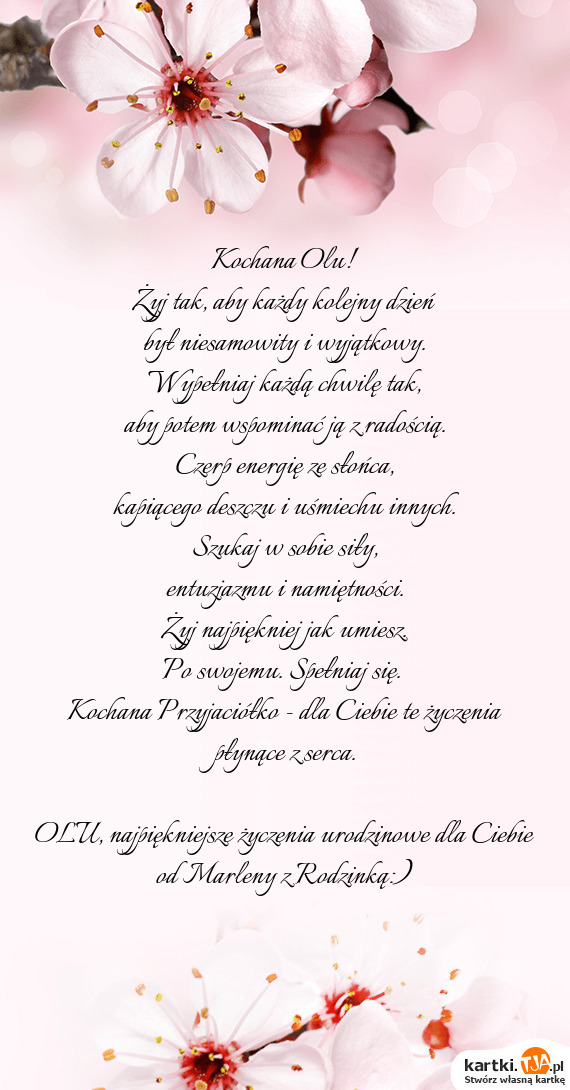 Kochana Olu!
Żyj tak, aby każdy kolejny dzień
był niesamowity i wyjątkowy.
Wypełniaj każdą chwilę tak,
aby potem wspominać ją z radością.
Czerp energię ze słońca,
kapiącego deszczu i uśmiechu innych.
Szukaj w sobie siły,
entuzjazmu i namiętności.
Żyj najpiękniej jak umiesz.
Po swojemu. Spełniaj się.
Kochana Przyjaciółko - dla Ciebie te życzenia
płynące z serca.
OLU, najpiękniejsze życzenia urodzinowe dla Ciebie
od Marleny z Rodzinką:)
kartki.TJA.pl
Stwórz własną kartkę